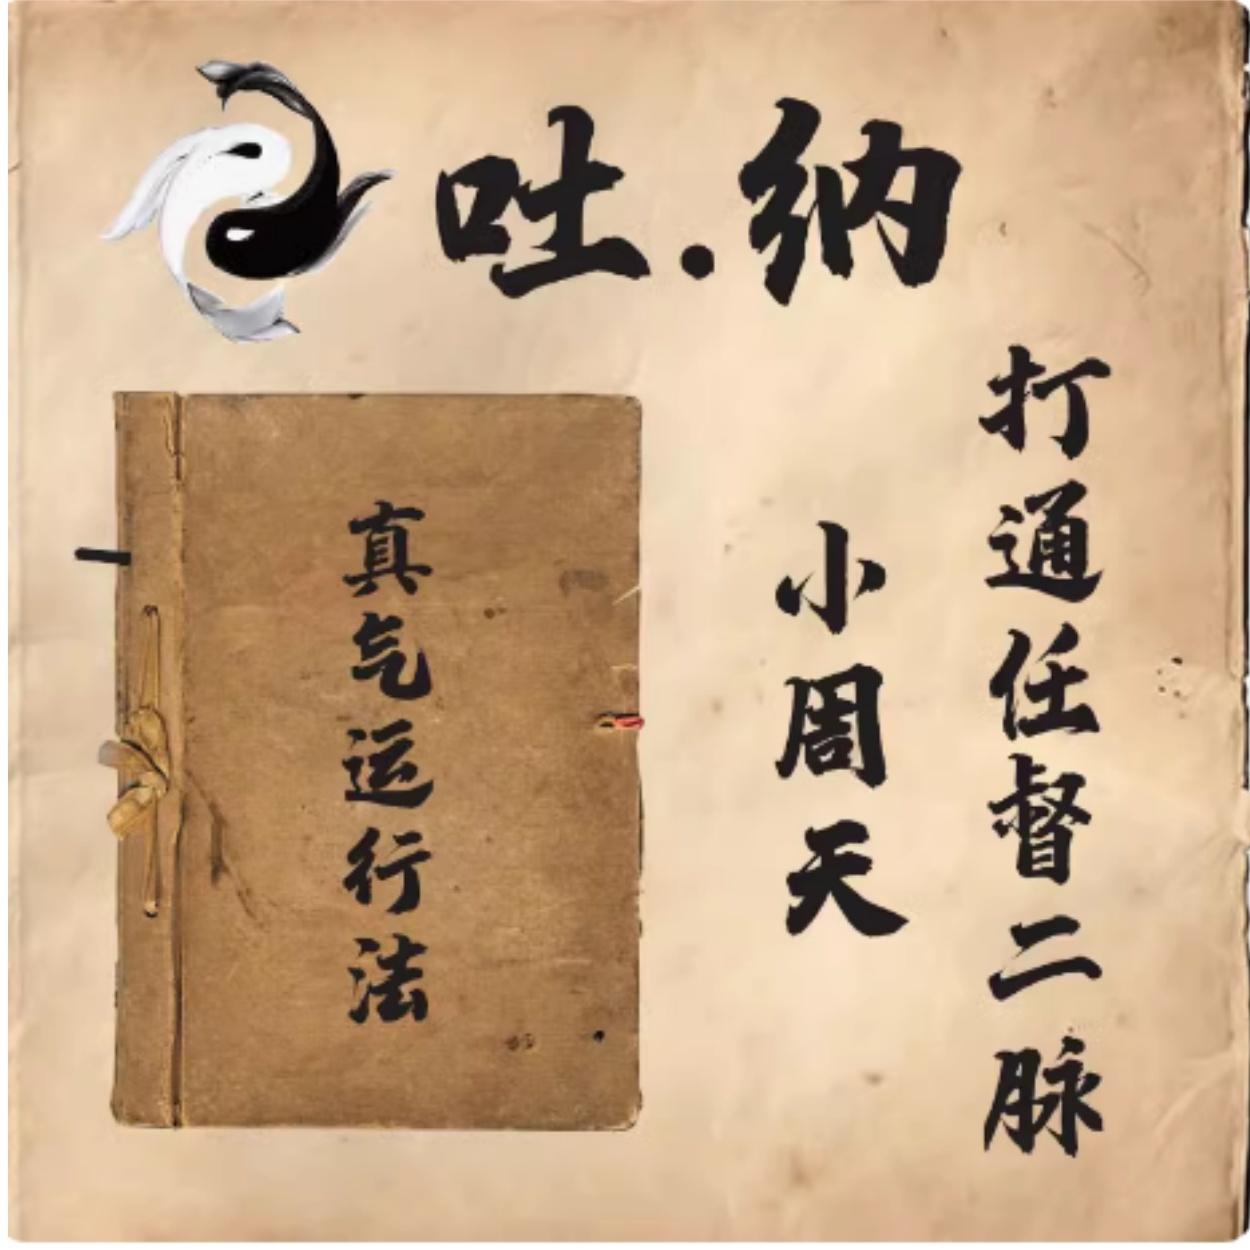 吐.纳
打通任督二脉
小周天
真气运行法